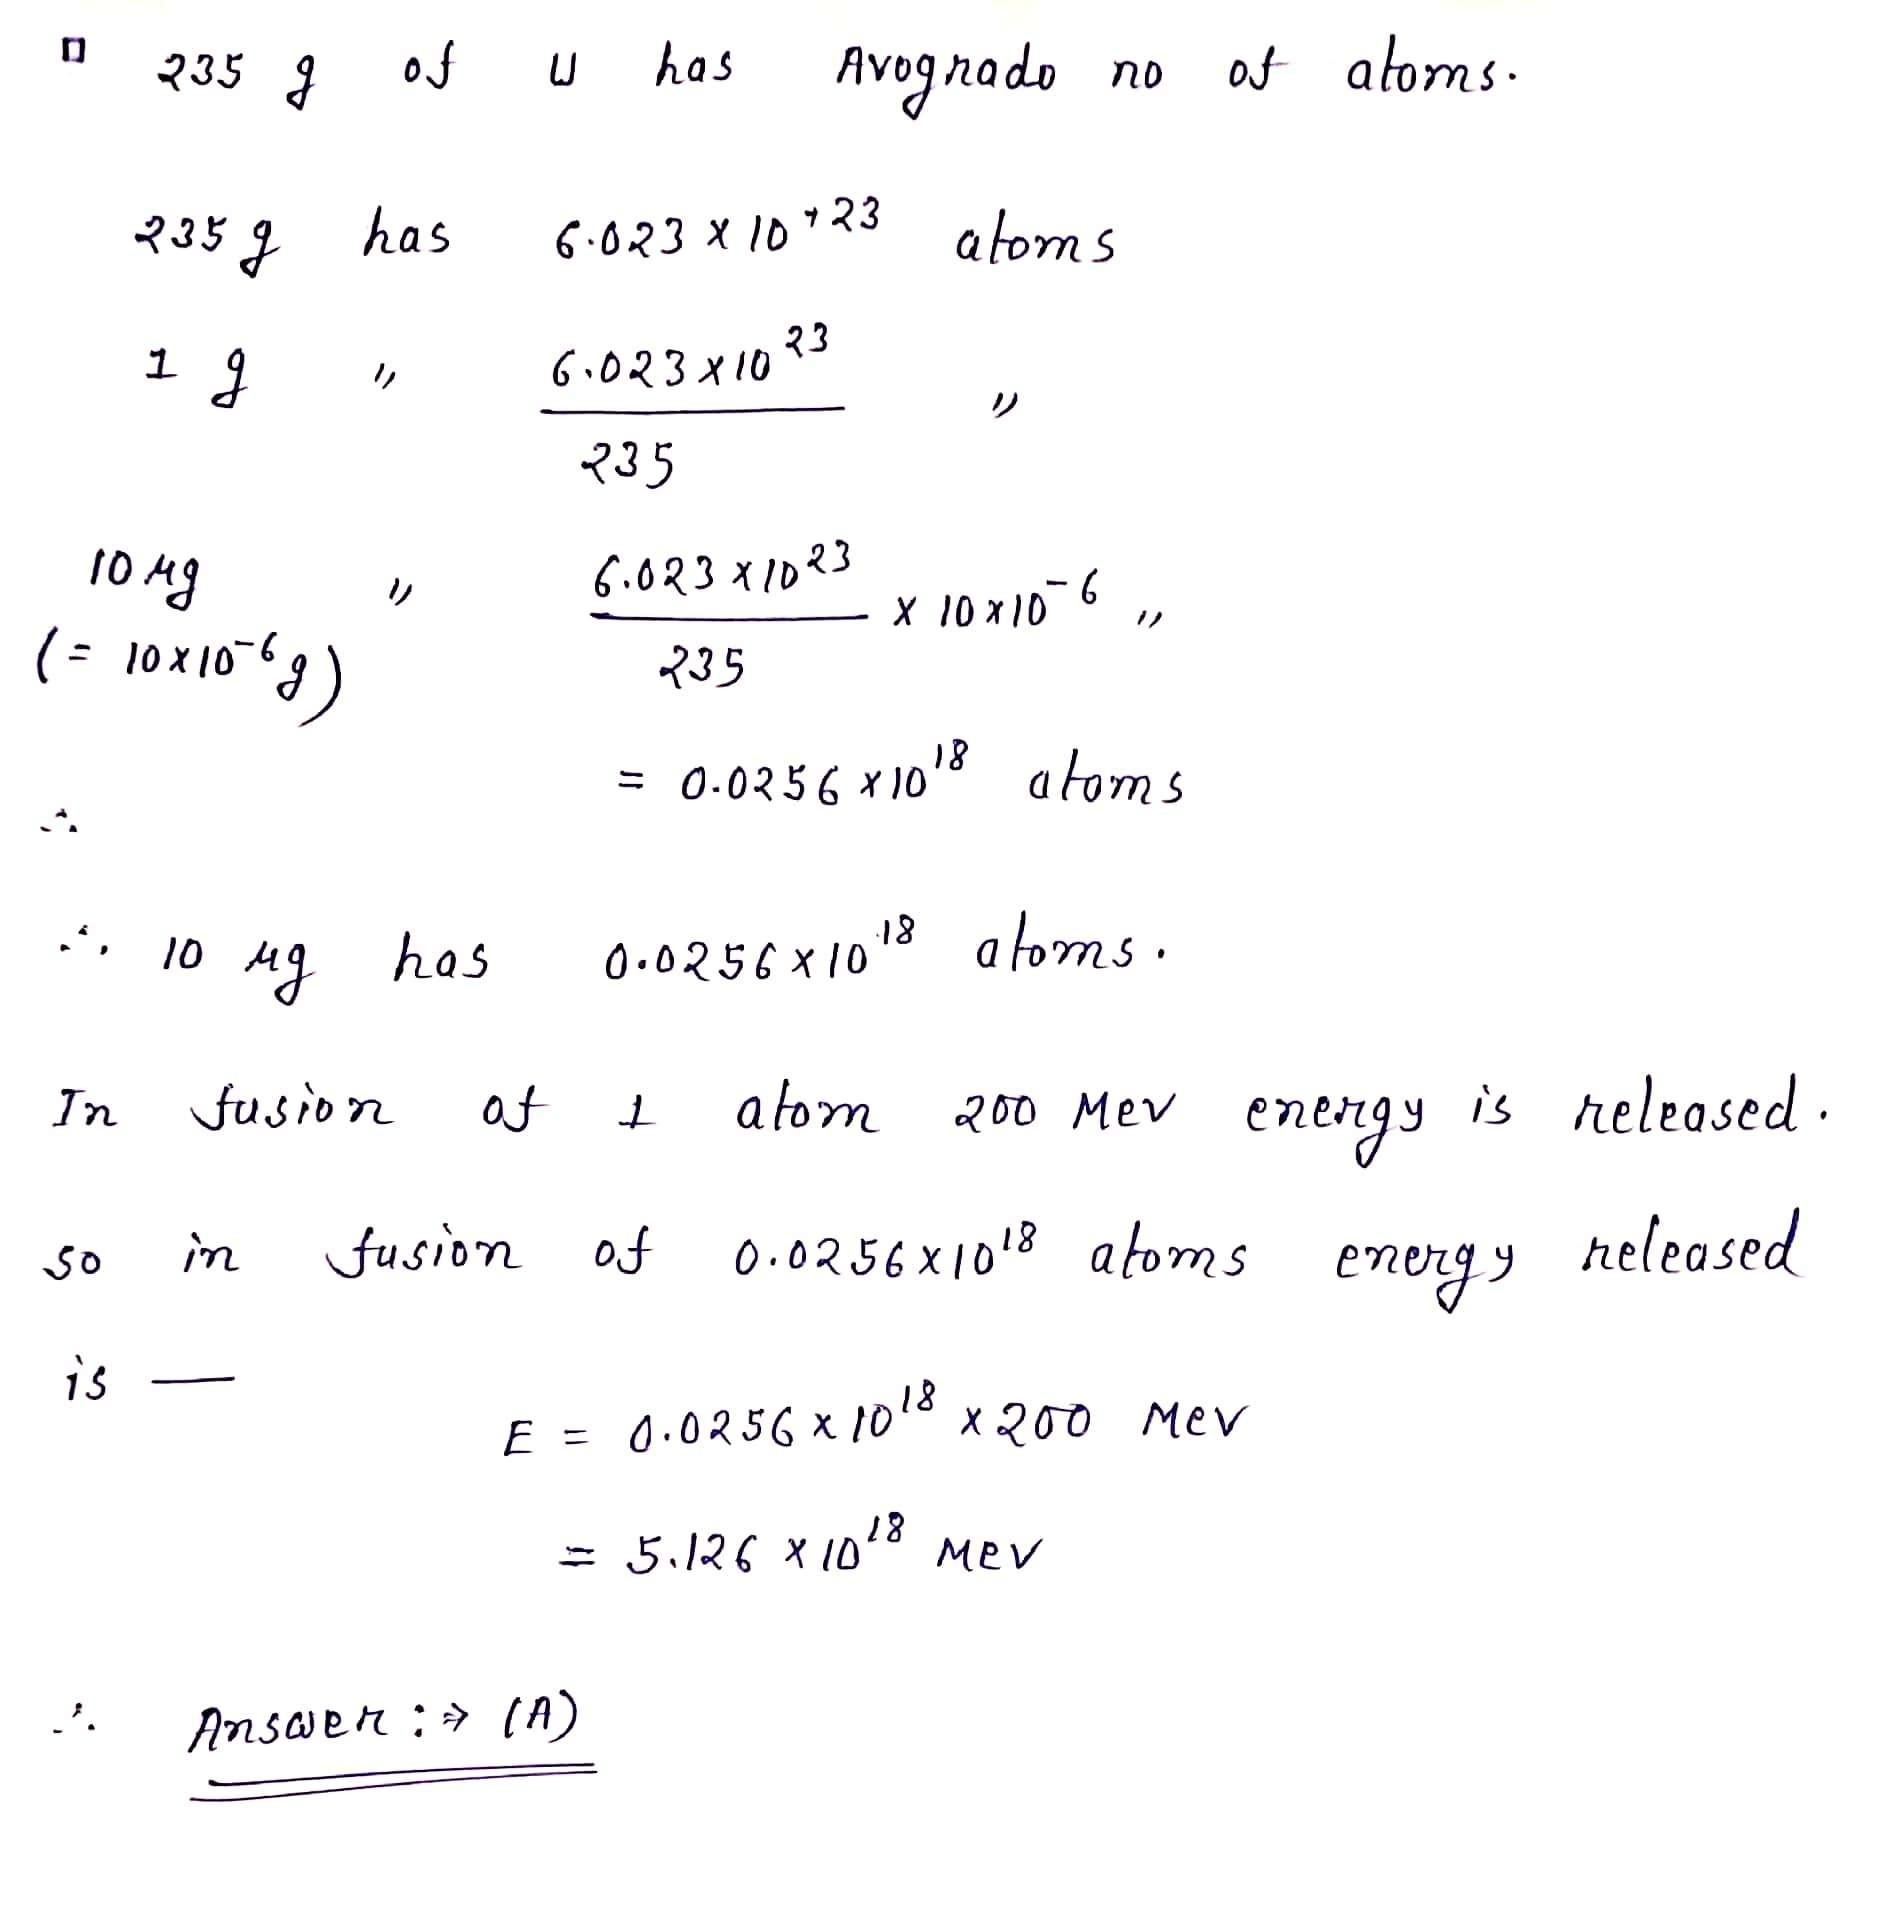 235 g of U has Avogrado no of atoms.
235 g has 6.023 x 10+23 atoms
1 g " 6.023 x 10^23 "
235
10 μg " 6.023 x 10^23 x 10 x 10^-6 "
(= 10 x 10^-6 g) 235
= 0.0256 x 10^18 atoms
∴
∴ 10 μg has 0.0256 x 10^18 atoms.
In fusion of 1 atom 200 Mev energy is released.
so in fusion of 0.0256 x 10^18 atoms energy released
is —
E = 0.0256 x 10^18 x 200 Mev
= 5.126 x 10^18 Mev
∴ Answer :⇒ (A)